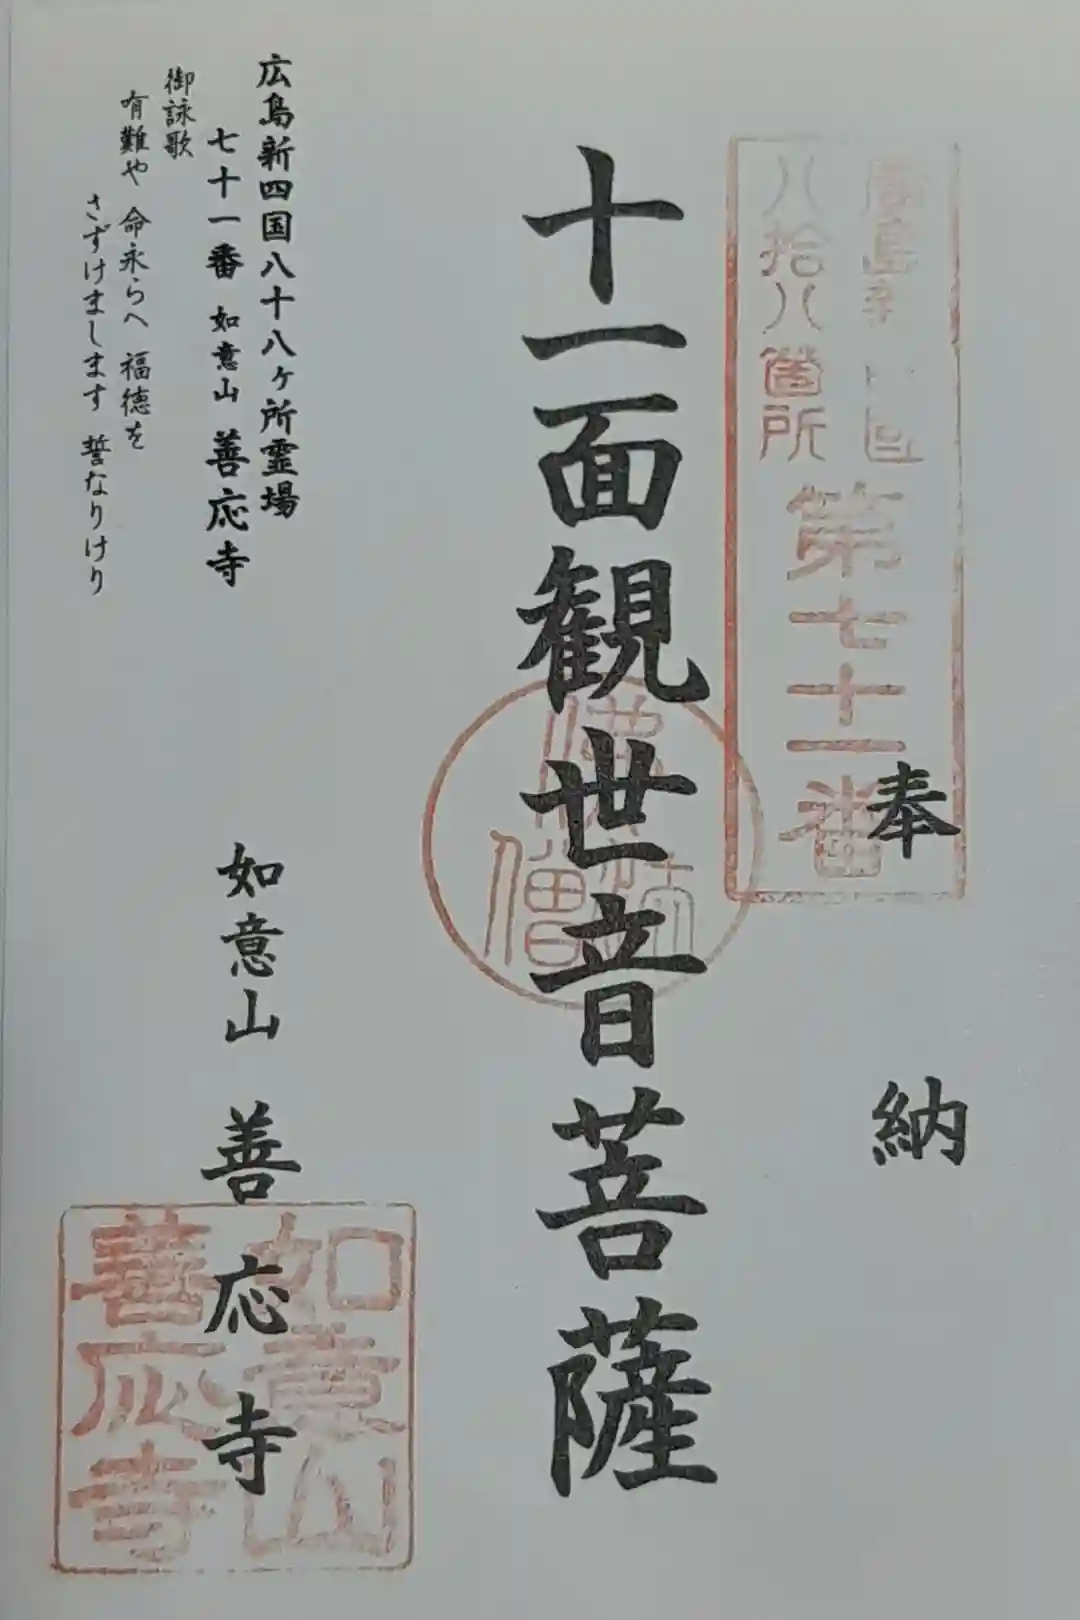 奉納
廣島新四国
八拾八箇所
第七十一番
十一面観世音菩薩
佛法僧
広島新四国八十八ヶ所霊場
七十一番 如意山 善応寺
御詠歌
有難や 命永らへ 福徳を
さずけまします 誓なりけり
如意山 善応寺
如意山
善应寺